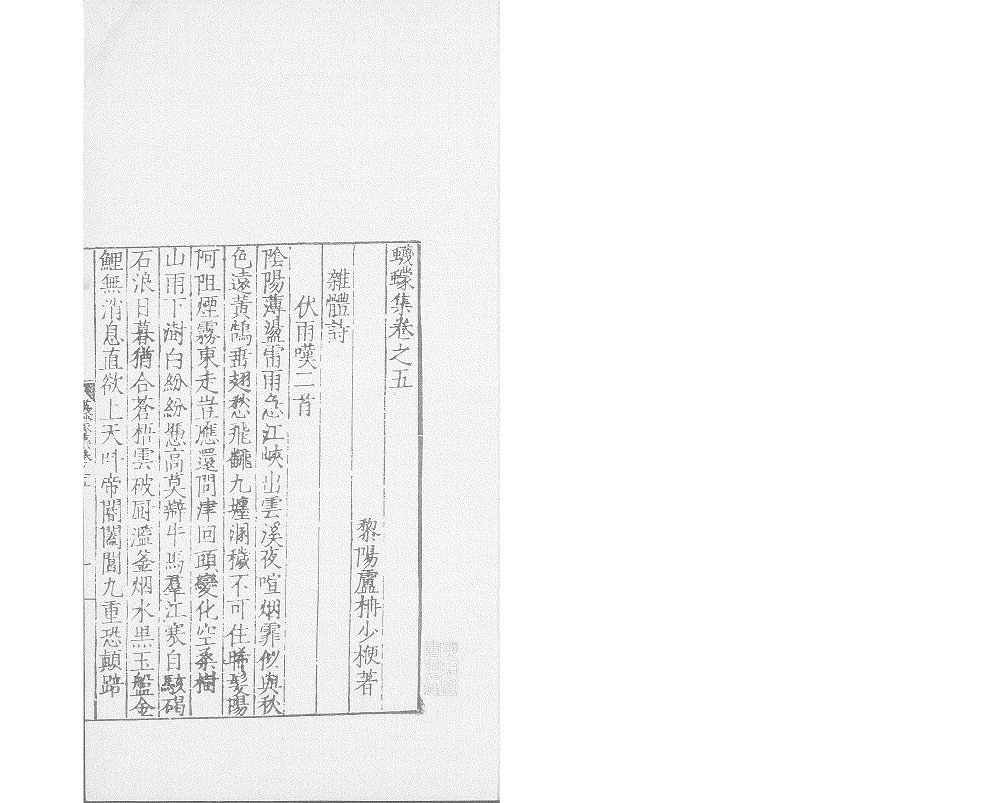 蠛蠓集卷之五
黎陽盧柟少楩著
雜體詩
伏雨嘆二首
陰陽薄盪雷雨急江峽出雲溪夜喧烟霏似與秋
色遠黃鵠垂翅愁飛飜九堙溷穢不可住晞髮陽
阿阻煙霧東走豈應還問津回頭變化空桑樹
山雨下澍白紛紛憑高莫辯牛馬羣江寒自駭碣
石浪日暮猶合蒼梧雲破厨濫釜烟水黑玉盤金
鯉無消息直欲上天叫帝閽闔閭九重恐顛踣